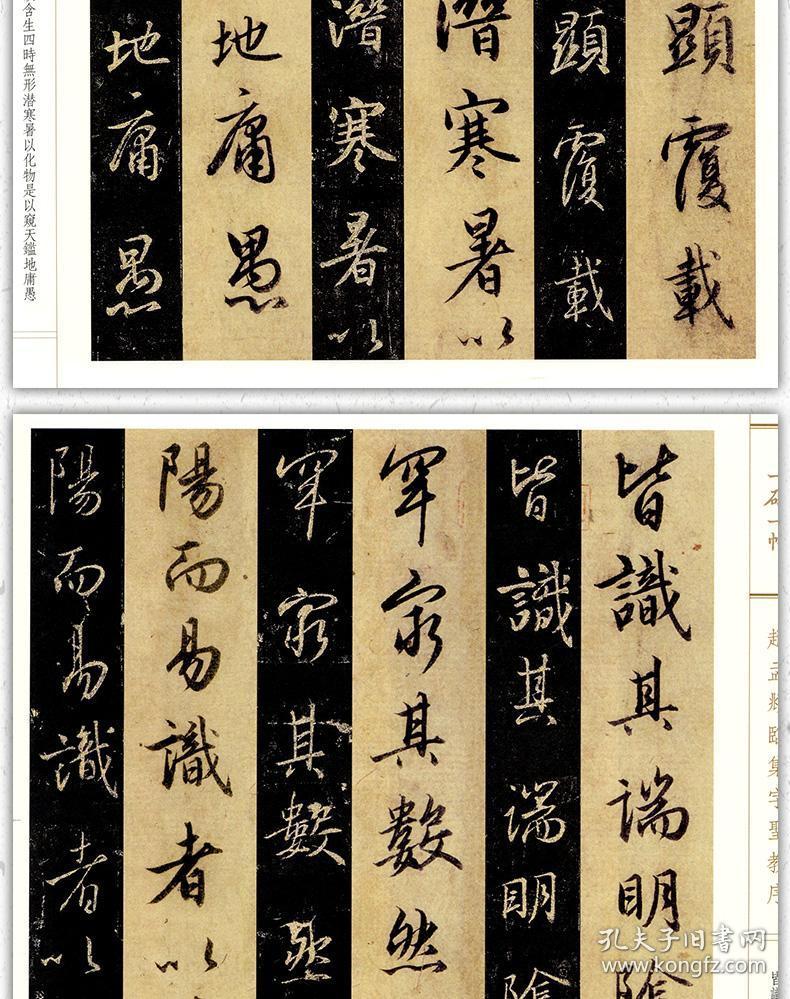 顯覆載
顯覆載
潛寒暑以
潛寒暑以
地庸愚
地庸愚
含生四時無形潜寒暑以化物是以窺天鑑地庸愚
一砚一帖
趙孟頫臨集字聖教序
皆識其端明陰
皆識其端明陰
罕窮其數然
罕窮其數然
陽而易識者以
陽而易識者以
孔夫子旧书网
www.kongfz.com